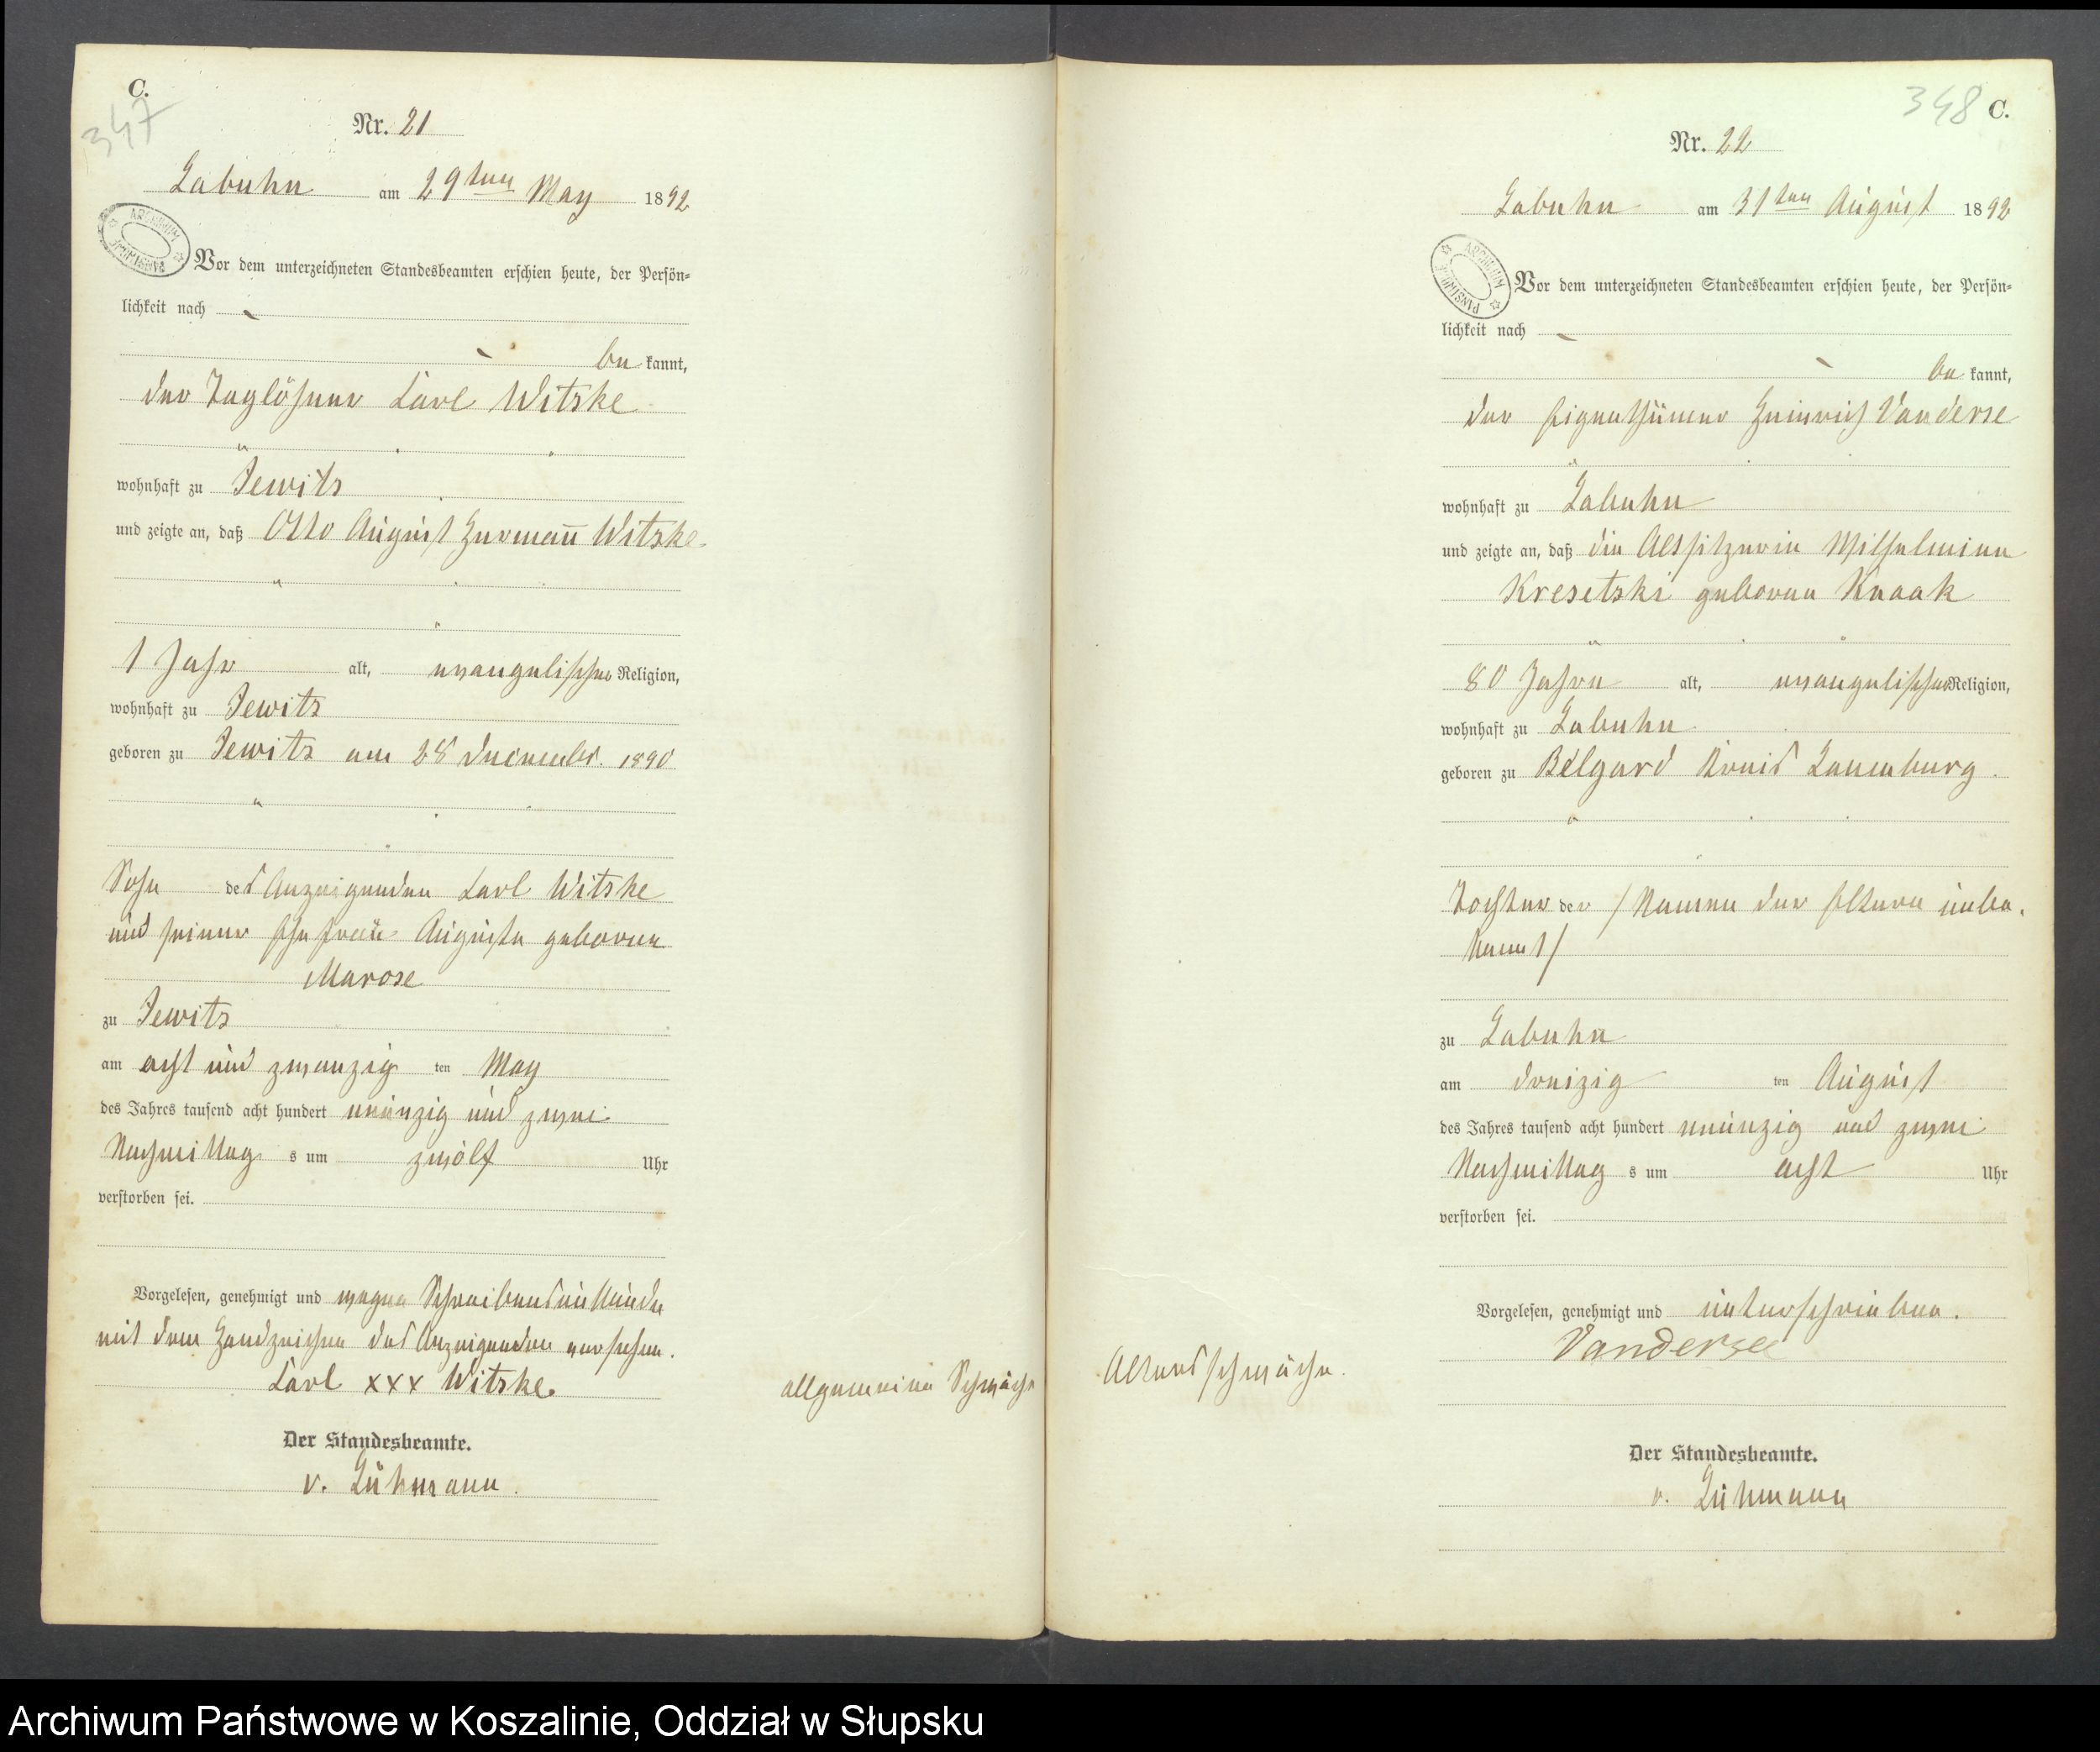 C.
347
Nr. 21
Labuhn am 29ten May 1892
ARCHIWUM PAŃSTWOWE
Vor dem unterzeichneten Standesbeamten erschien heute, der Persön-
lichkeit nach
be kannt,
der Taglöhner Carl Witzke
wohnhaft zu Jewitz
und zeigte an, daß Otto August Hermann Witzke
1 Jahr alt, evangelischer Religion,
wohnhaft zu Jewitz
geboren zu Jewitz am 28 December 1890
Sohn des Anzeigenden Carl Witzke
und seiner Ehefrau Auguste geborene
Marose
zu Jewitz
am acht und zwanzig ten May
des Jahres tausend acht hundert neunzig und zwei
Nachmittag s um zwölf Uhr
verstorben sei.
Vorgelesen, genehmigt und wegen Schreibensunkunde
mit dem Handzeichen des Anzeigenden versehen.
Carl xxx Witzke.
Der Standesbeamte.
v. Lühmann.
allgemeine Schwäche
348 C.
Nr. 22
Labuhn am 31ten August 1892
ARCHIWUM PAŃSTWOWE
Vor dem unterzeichneten Standesbeamten erschien heute, der Persön-
lichkeit nach
be kannt,
der Eigenthümer Heinrich Vanderse
wohnhaft zu Labuhn
und zeigte an, daß die Altsitzerin Wilhelmine
Kresetzki geborene Knaak
80 Jahre alt, evangelischer Religion,
wohnhaft zu Labuhn
geboren zu Belgard Kreis Lauenburg.
Tochter der /Namen der Eltern unbe-
kannt/
zu Labuhn
am dreizig ten August
des Jahres tausend acht hundert neunzig und zwei
Nachmittag s um acht Uhr
verstorben sei.
Vorgelesen, genehmigt und unterschrieben.
Vandersee
Altersschwäche.
Der Standesbeamte.
v. Lühmann
Archiwum Państwowe w Koszalinie, Oddział w Słupsku